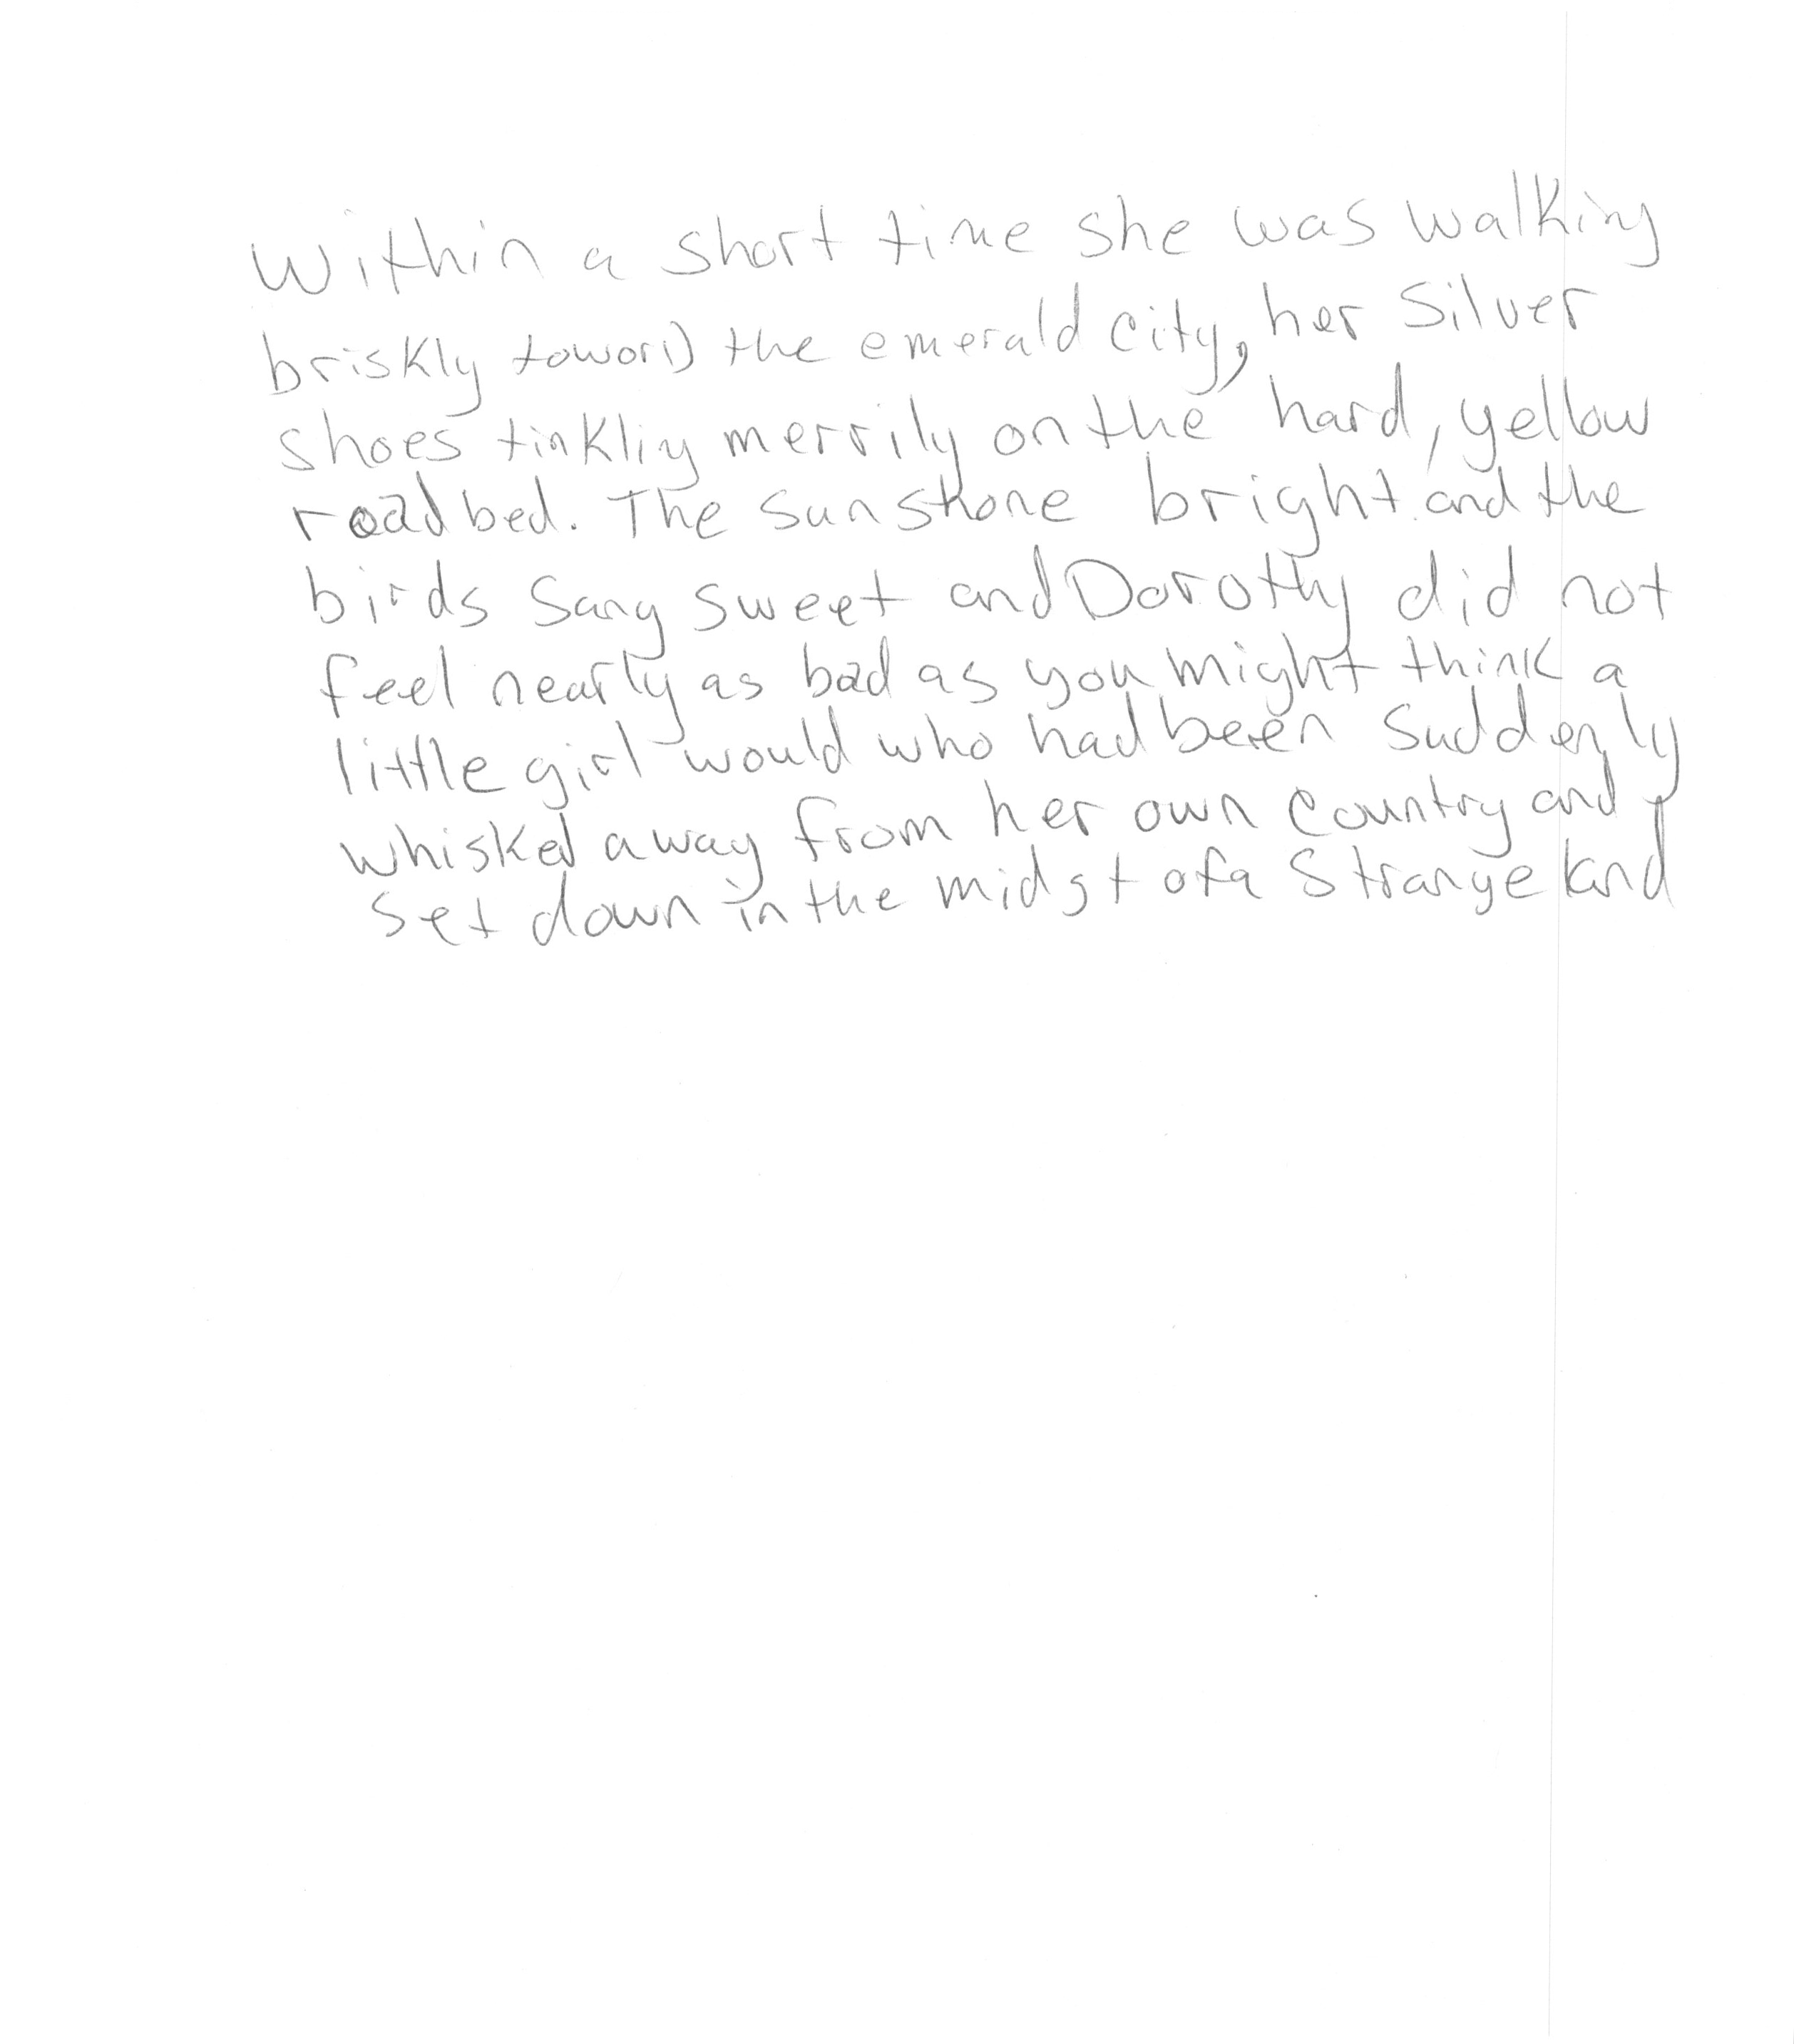 Within a short time she was walking
briskly toward the emerald city, her silver
shoes tinkling merrily on the hard, yellow
road bed. The sun shone bright and the
birds sang sweet and Dorothy did not
feel nearly as bad as you might think a
little girl would who had been suddenly
whisked away from her own country and
set down in the midst of a strange land